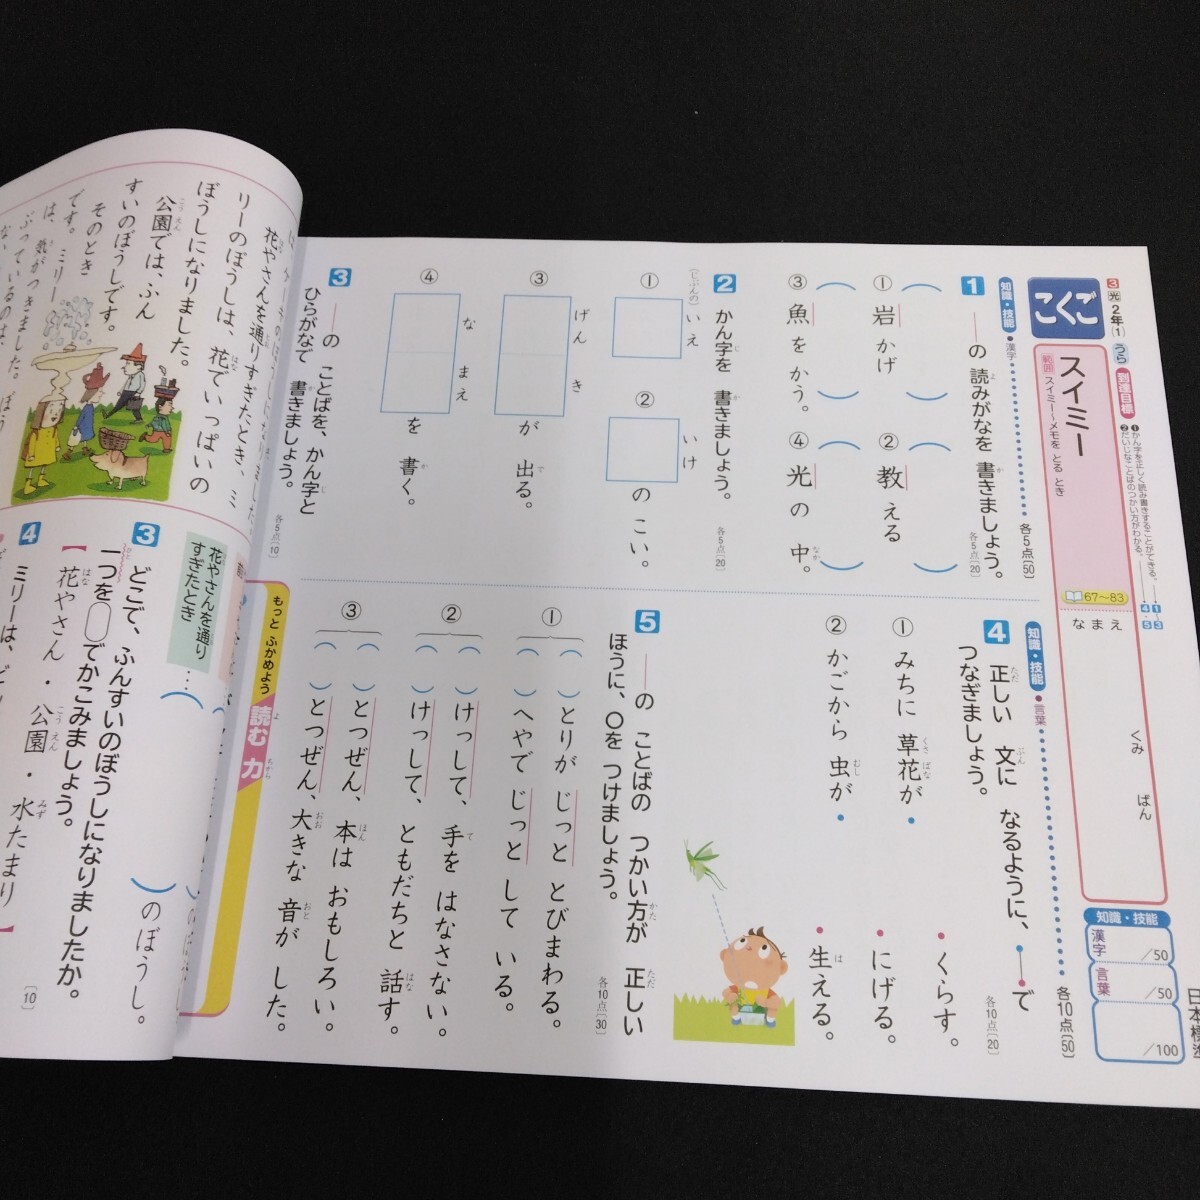 3 光 2年① うら
こくご
到達目標
❶かん字を正しく読み書きすることができる。 1~3
❷だいじなことばのつかい方がわかる。 4・5
スイミー
範囲 スイミー~メモを とる とき
67~83
なまえ
くみ
ばん
知識・技能
漢字 /50
言葉 /50
/100
日本標準
知識・技能 ●漢字 各5点〔50〕
1 ――の 読みがなを 書きましょう。 各5点〔20〕
① 岩かげ
② 教える
③ 魚を かう。
④ 光の 中。
2 かん字を 書きましょう。 各5点〔20〕
① (じぶんの)いえ
② いけ のこい。
③ げんき が 出る。
④ なまえ を 書く。
3 ――の ことばを、かん字と
ひらがなで 書きましょう。 各5点〔10〕
知識・技能 ●言葉 各10点〔50〕
4 正しい 文に なるように、●―●で
つなぎましょう。 各10点〔20〕
① みちに 草花が・
② かごから 虫が・
・くらす。
・にげる。
・生える。
5 ――の ことばの つかい方が 正しい
ほうに、○を つけましょう。 各10点〔30〕
①
( )とりが じっと とびまわる。
( )へやで じっと して いる。
②
( )けっして、手を はなさない。
( )けっして、ともだちと 話す。
③
( )とつぜん、本は おもしろい。
( )とつぜん、大きな 音が した。
もっと ふかめよう
読む力
花やさんを通りすぎたとき、ミ
リーのぼうしは、花でいっぱいの
ぼうしになりました。
公園では、ふん
すいのぼうしです。
そのとき
です。ミリー
は、気がつきました。
花やさんを通り
すぎたとき…
( )のぼうし。
3 どこで、ふんすいのぼうしになりましたか。
一つを◯でかこみましょう。 〔10〕
【 花やさん・公園・水たまり 】
4 ミリーは、